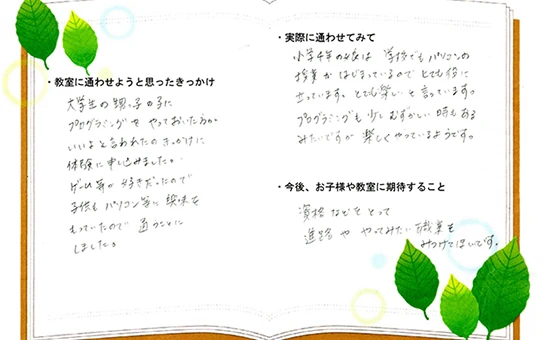 ・教室に通わせようと思ったきっかけ
大学生の甥っ子の子に
プログラミングをやっておいた方が
いいよと言われたのきっかけに
体験に申し込みました。
ゲーム等が好きだったので
子供もパソコン等に興味を
もっていたので通うことに
しました。
・実際に通わせてみて
小学4年の次は学校でもパソコンの
授業がはじまっているのでとても役に
立っています。とても楽しいと言っています。
プログラミングも少しむずかしい時もある
みたいですが楽しくやっているようです。
・今後、お子様や教室に期待すること
資格などをとって
進路ややってみたい職業を
みつけてほしいです。